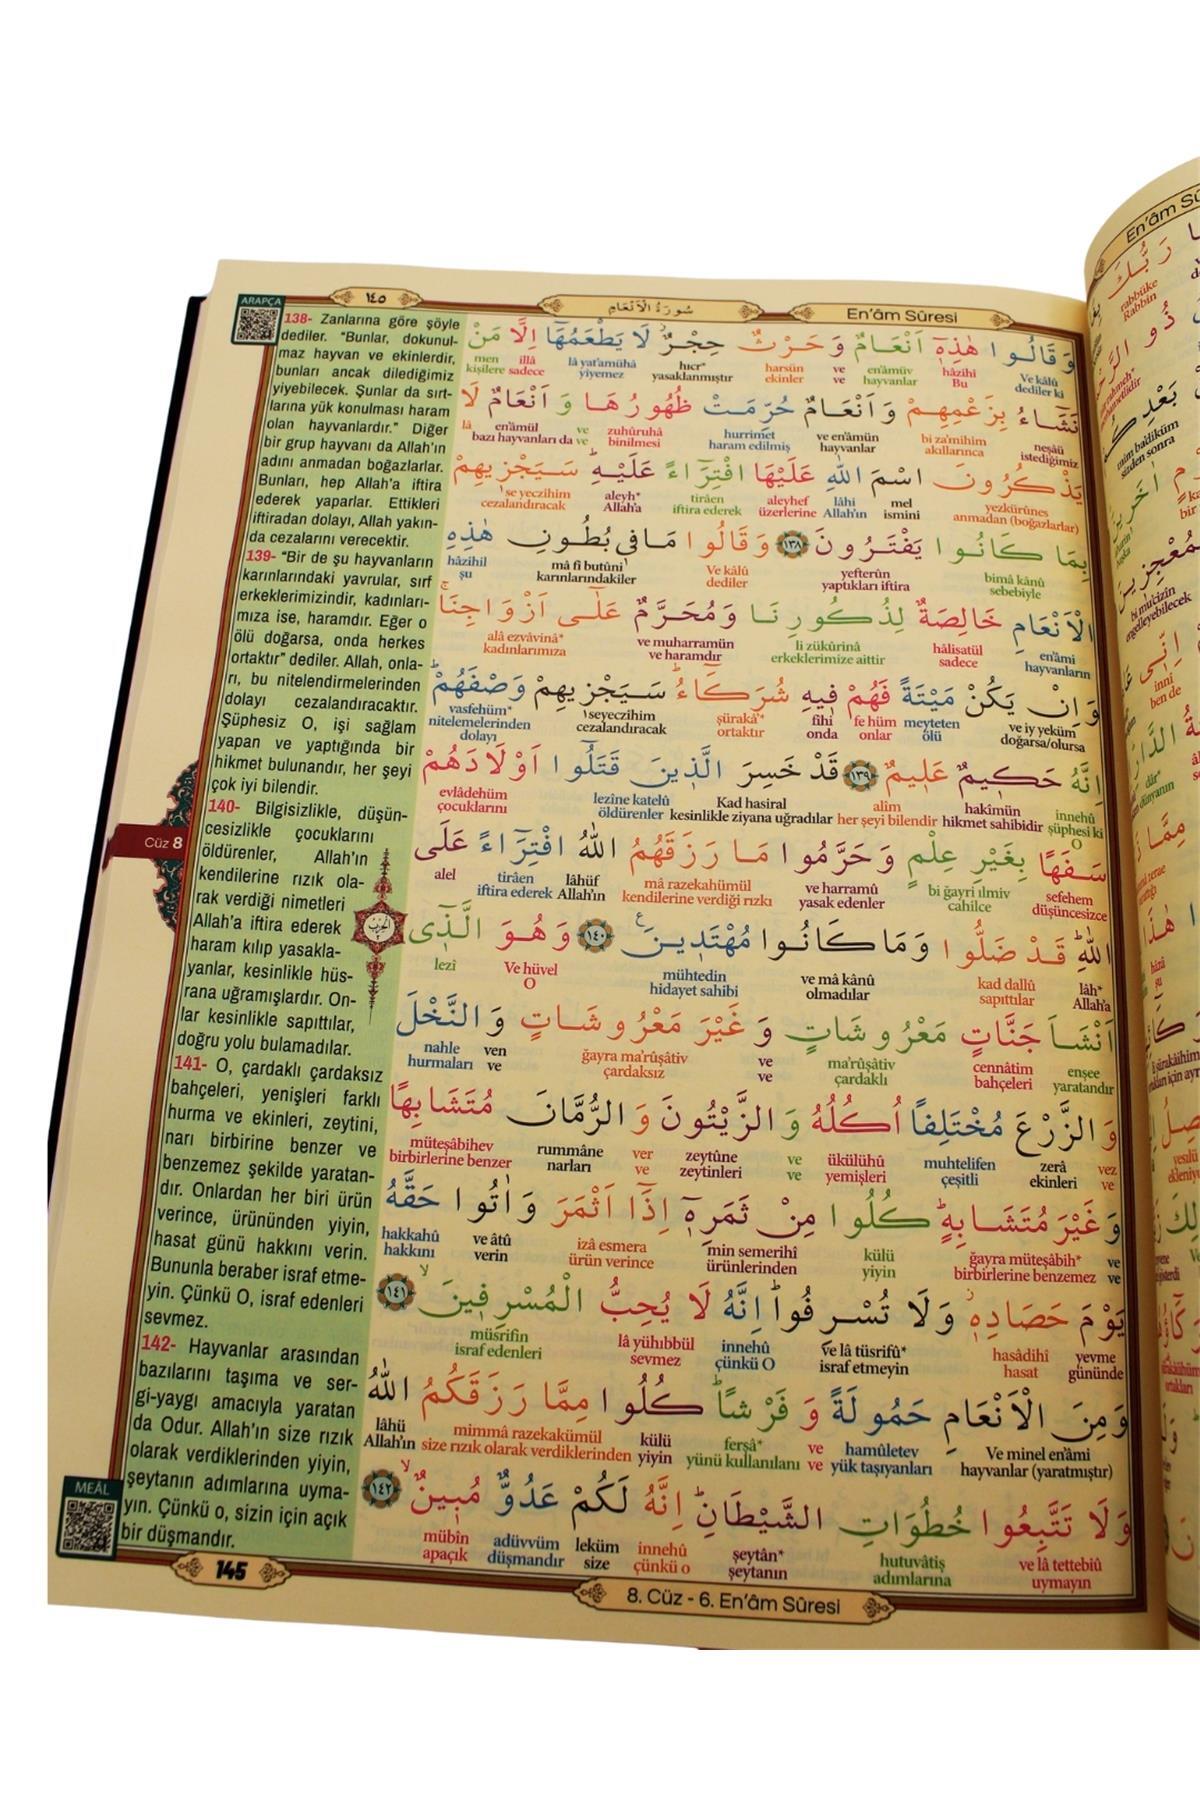 ARAPÇA
١٤٥
سُورَةُ الْاَنْعَامِ
En'âm Sûresi
138- Zanlarına göre şöyle
dediler. "Bunlar, dokunul-
maz hayvan ve ekinlerdir,
bunları ancak dilediğimiz
yiyebilecek. Şunlar da sırt-
larına yük konulması haram
olan hayvanlardır." Diğer
bir grup hayvanı da Allah'ın
adını anmadan boğazlarlar.
Bunları, hep Allah'a iftira
ederek yaparlar. Ettikleri
iftiradan dolayı, Allah yakın-
da cezalarını verecektir.
139- "Bir de şu hayvanların
karınlarındaki yavrular, sırf
erkeklerimizindir, kadınları-
mıza ise, haramdır. Eğer o
ölü doğarsa, onda herkes
ortaktır" dediler. Allah, onla-
rı, bu nitelendirmelerinden
dolayı cezalandıracaktır.
Şüphesiz O, işi sağlam
yapan ve yaptığında bir
hikmet bulunandır, her şeyi
çok iyi bilendir.
140- Bilgisizlikle, düşün-
cesizlikle çocuklarını
öldürenler, Allah'ın
kendilerine rızık ola-
rak verdiği nimetleri
Allah'a iftira ederek
haram kılıp yasakla-
yanlar, kesinlikle hüs-
rana uğramışlardır. On-
lar kesinlikle sapıttılar,
doğru yolu bulamadılar.
141- O, çardaklı çardaksız
bahçeleri, yenişleri farklı
hurma ve ekinleri, zeytini,
narı birbirine benzer ve
benzemez şekilde yaratan-
dır. Onlardan her biri ürün
verince, ürününden yiyin,
hasat günü hakkını verin.
Bununla beraber israf etme-
yin. Çünkü O, israf edenleri
sevmez.
142- Hayvanlar arasından
bazılarını taşıma ve ser-
gi-yaygı amacıyla yaratan
da Odur. Allah'ın size rızık
olarak verdiklerinden yiyin,
şeytanın adımlarına uyma-
yın. Çünkü o, sizin için açık
bir düşmandır.
Cüz 8
MEÂL
145
وَقَالُوا هٰذِهٖٓ اَنْعَامٌ وَحَرْثٌ حِجْرٌۗ لَا يَطْعَمُهَٓا اِلَّا مَنْ
men illâ lâ yat'amühâ hıcr* harsün ve en'âmüv hâzihî Ve kâlû
kişilere sadece yiyemez yasaklanmıştır ekinler ve hayvanlar Bu dediler ki
نَشَٓاءُ بِزَعْمِهِمْ وَاَنْعَامٌ حُرِّمَتْ ظُهُورُهَا وَاَنْعَامٌ لَا
lâ en'âmül ve zuhûruhâ hurrimet ve en'âmün bi za'mihim neşâü
bazı hayvanları da ve binilmesi haram edilmiş hayvanlar akıllarınca istediğimiz
يَذْكُرُونَ اسْمَ اللّٰهِ عَلَيْهَا افْتِرَٓاءً عَلَيْهِۜ سَيَجْزٖيهِمْ
se yeczîhim aleyh* tirâen aleyhef lâhi mel yezkurûnes
cezalandıracak Allah'a iftira ederek üzerlerine Allah'ın ismini anmadan (boğazlarlar)
بِمَا كَانُوا يَفْتَرُونَ ﴿١٣٨﴾ وَقَالُوا مَا فٖي بُطُونِ هٰذِهِ
hâzihil mâ fî butûni Ve kâlû yefterûn bimâ kânû
şu karınlarındakiler dediler yaptıkları iftira sebebiyle
الْاَنْعَامِ خَالِصَةٌ لِذُكُورِنَا وَمُحَرَّمٌ عَلٰٓى اَزْوَاجِنَاۚ
alâ ezvâvinâ* ve muharramün li zükûrinâ hâlisatül en'âmi
kadınlarımıza ve haramdır erkeklerimize aittir sadece hayvanların
وَاِنْ يَكُنْ مَيْتَةً فَهُمْ فٖيهِ شُرَكَٓاءُۜ سَيَجْزٖيهِمْ وَصْفَهُمْۜ
vasfehüm* seyeczîhim şürakâ* fîhi fe hüm meyteten ve iy yeküm
nitelemelerinden dolayı cezalandıracak ortaktır onda onlar ölü doğarsa/olursa
اِنَّهُ حَكٖيمٌ عَلٖيمٌ ﴿١٣٩﴾ قَدْ خَسِرَ الَّذٖينَ قَتَلُٓوا اَوْلَادَهُمْ
evlâdehüm lezîne katelû Kad hasiral alîm hakîmün innehû
çocuklarını öldürenler kesinlikle ziyana uğradılar her şeyi bilendir hikmet sahibidir şüphesi ki O
سَفَهًا بِغَيْرِ عِلْمٍ وَحَرَّمُوا مَا رَزَقَهُمُ اللّٰهُ افْتِرَٓاءً عَلَى
alel tirâen lâhüf mâ razekahümül ve harramû bi ğayri ılmiv sefehem
iftira ederek Allah'ın kendilerine verdiği rızkı yasak edenler cahilce düşüncesizce
اللّٰهِۜ قَدْ ضَلُّوا وَمَا كَانُوا مُهْتَدٖينَ ﴿١٤٠﴾ وَهُوَ الَّذٖٓي
lezî Ve hüvel mühtedîn ve mâ kânû kad dallû lâh*
O hidayet sahibi olmadılar sapıttılar Allah'a
اَنْشَاَ جَنَّاتٍ مَعْرُوشَاتٍ وَغَيْرَ مَعْرُوشَاتٍ وَالنَّخْلَ
nahle ven ğayra ma'rûşâtiv ve ma'rûşâtiv cennâtim enşee
hurmaları ve çardaksız ve çardaklı bahçeleri yaratandır
وَالزَّرْعَ مُخْتَلِفًا اُكُلُهُ وَالزَّيْتُونَ وَالرُّمَّانَ مُتَشَابِهًا
müteşâbihev rummâne ver zeytûne ve ükülühû muhtelifen zerâ vez
birbirlerine benzer narları ve zeytinleri ve yemişleri çeşitli ekinleri ve
وَغَيْرَ مُتَشَابِهٍۜ كُلُوا مِنْ ثَمَرِهٖٓ اِذَٓا اَثْمَرَ وَاٰتُوا حَقَّهُ
hakkahû ve âtû izâ esmera min semerihî külü ğayra müteşâbih* ve
hakkını verin ürün verince ürünlerinden yiyin birbirlerine benzemez ve
يَوْمَ حَصَادِهٖۘ وَلَا تُسْرِفُواۜ اِنَّهُ لَا يُحِبُّ الْمُسْرِفٖينَۙ ﴿١٤١﴾
müsrifîn lâ yühıbbül innehû ve lâ tüsrifû* hasâdihî yevme
israf edenleri sevmez çünkü O israf etmeyin hasat gününde
وَمِنَ الْاَنْعَامِ حَمُولَةً وَفَرْشًاۜ كُلُوا مِمَّا رَزَقَكُمُ اللّٰهُ
lâhü mimmâ razekakümül külü ferşâ* ve hamûletev Ve minel en'âmi
Allah'ın size rızık olarak verdiklerinden yiyin yünü kullanılanı ve yük taşıyanları hayvanlar (yaratmıştır)
وَلَا تَتَّبِعُوا خُطُوَاتِ الشَّيْطَانِۜ اِنَّهُ لَكُمْ عَدُوٌّ مُبٖينٌۙ ﴿١٤٢﴾
mübîn adüvvüm leküm innehû şeytân* hutuvâtiş ve lâ tettebiû
apaçık düşmandır size çünkü o şeytanın adımlarına uymayın
8. Cüz - 6. En'âm Sûresi